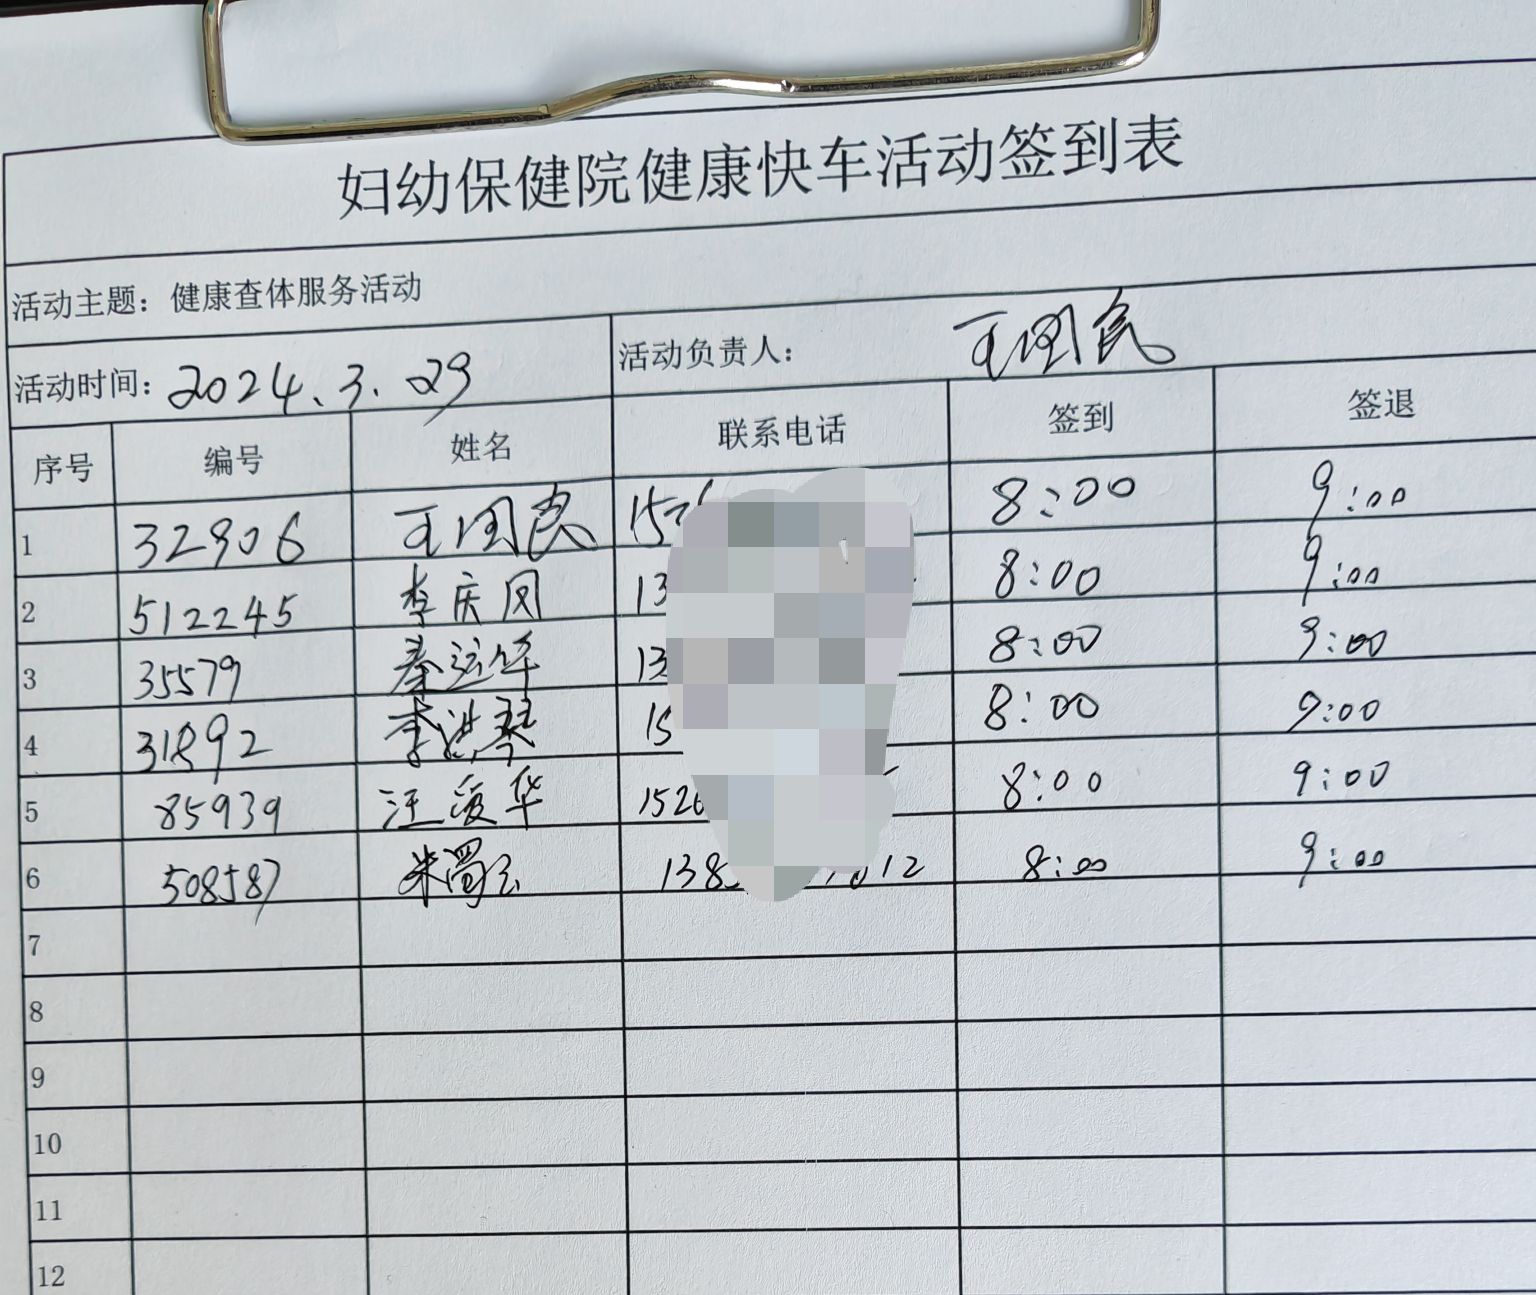 妇幼保健院健康快车活动签到表
活动主题：健康查体服务活动
活动时间：2024.3.29 活动负责人：王国民
序号 编号 姓名 联系电话 签到 签退
1 32906 王国民 15 8:00 9:00
2 512245 李庆凤 13 8:00 9:00
3 35579 秦运华 13 8:00 9:00
4 31892 李洪琴 15 8:00 9:00
5 85939 汪爱华 152 8:00 9:00
6 508587 朱蜀云 138 12 8:00 9:00
7
8
9
10
11
12